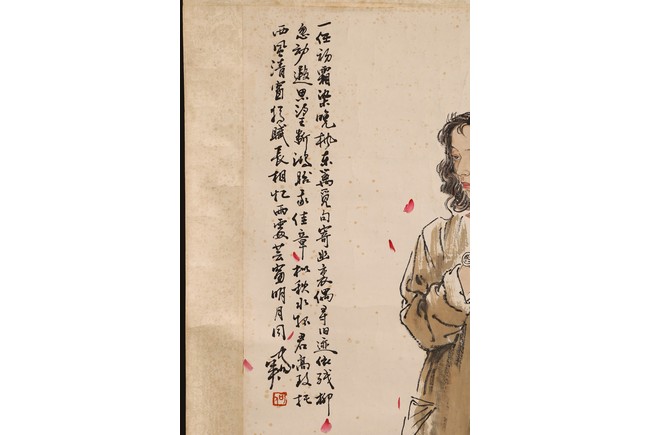 一任初霜染晚枫东篱觅句寄幽衷偶寻旧迹依残柳
忽动遐思望断鸿我佳章秋水怀君高致托
西风清宵犹赋长相忆两处芸窗明月同